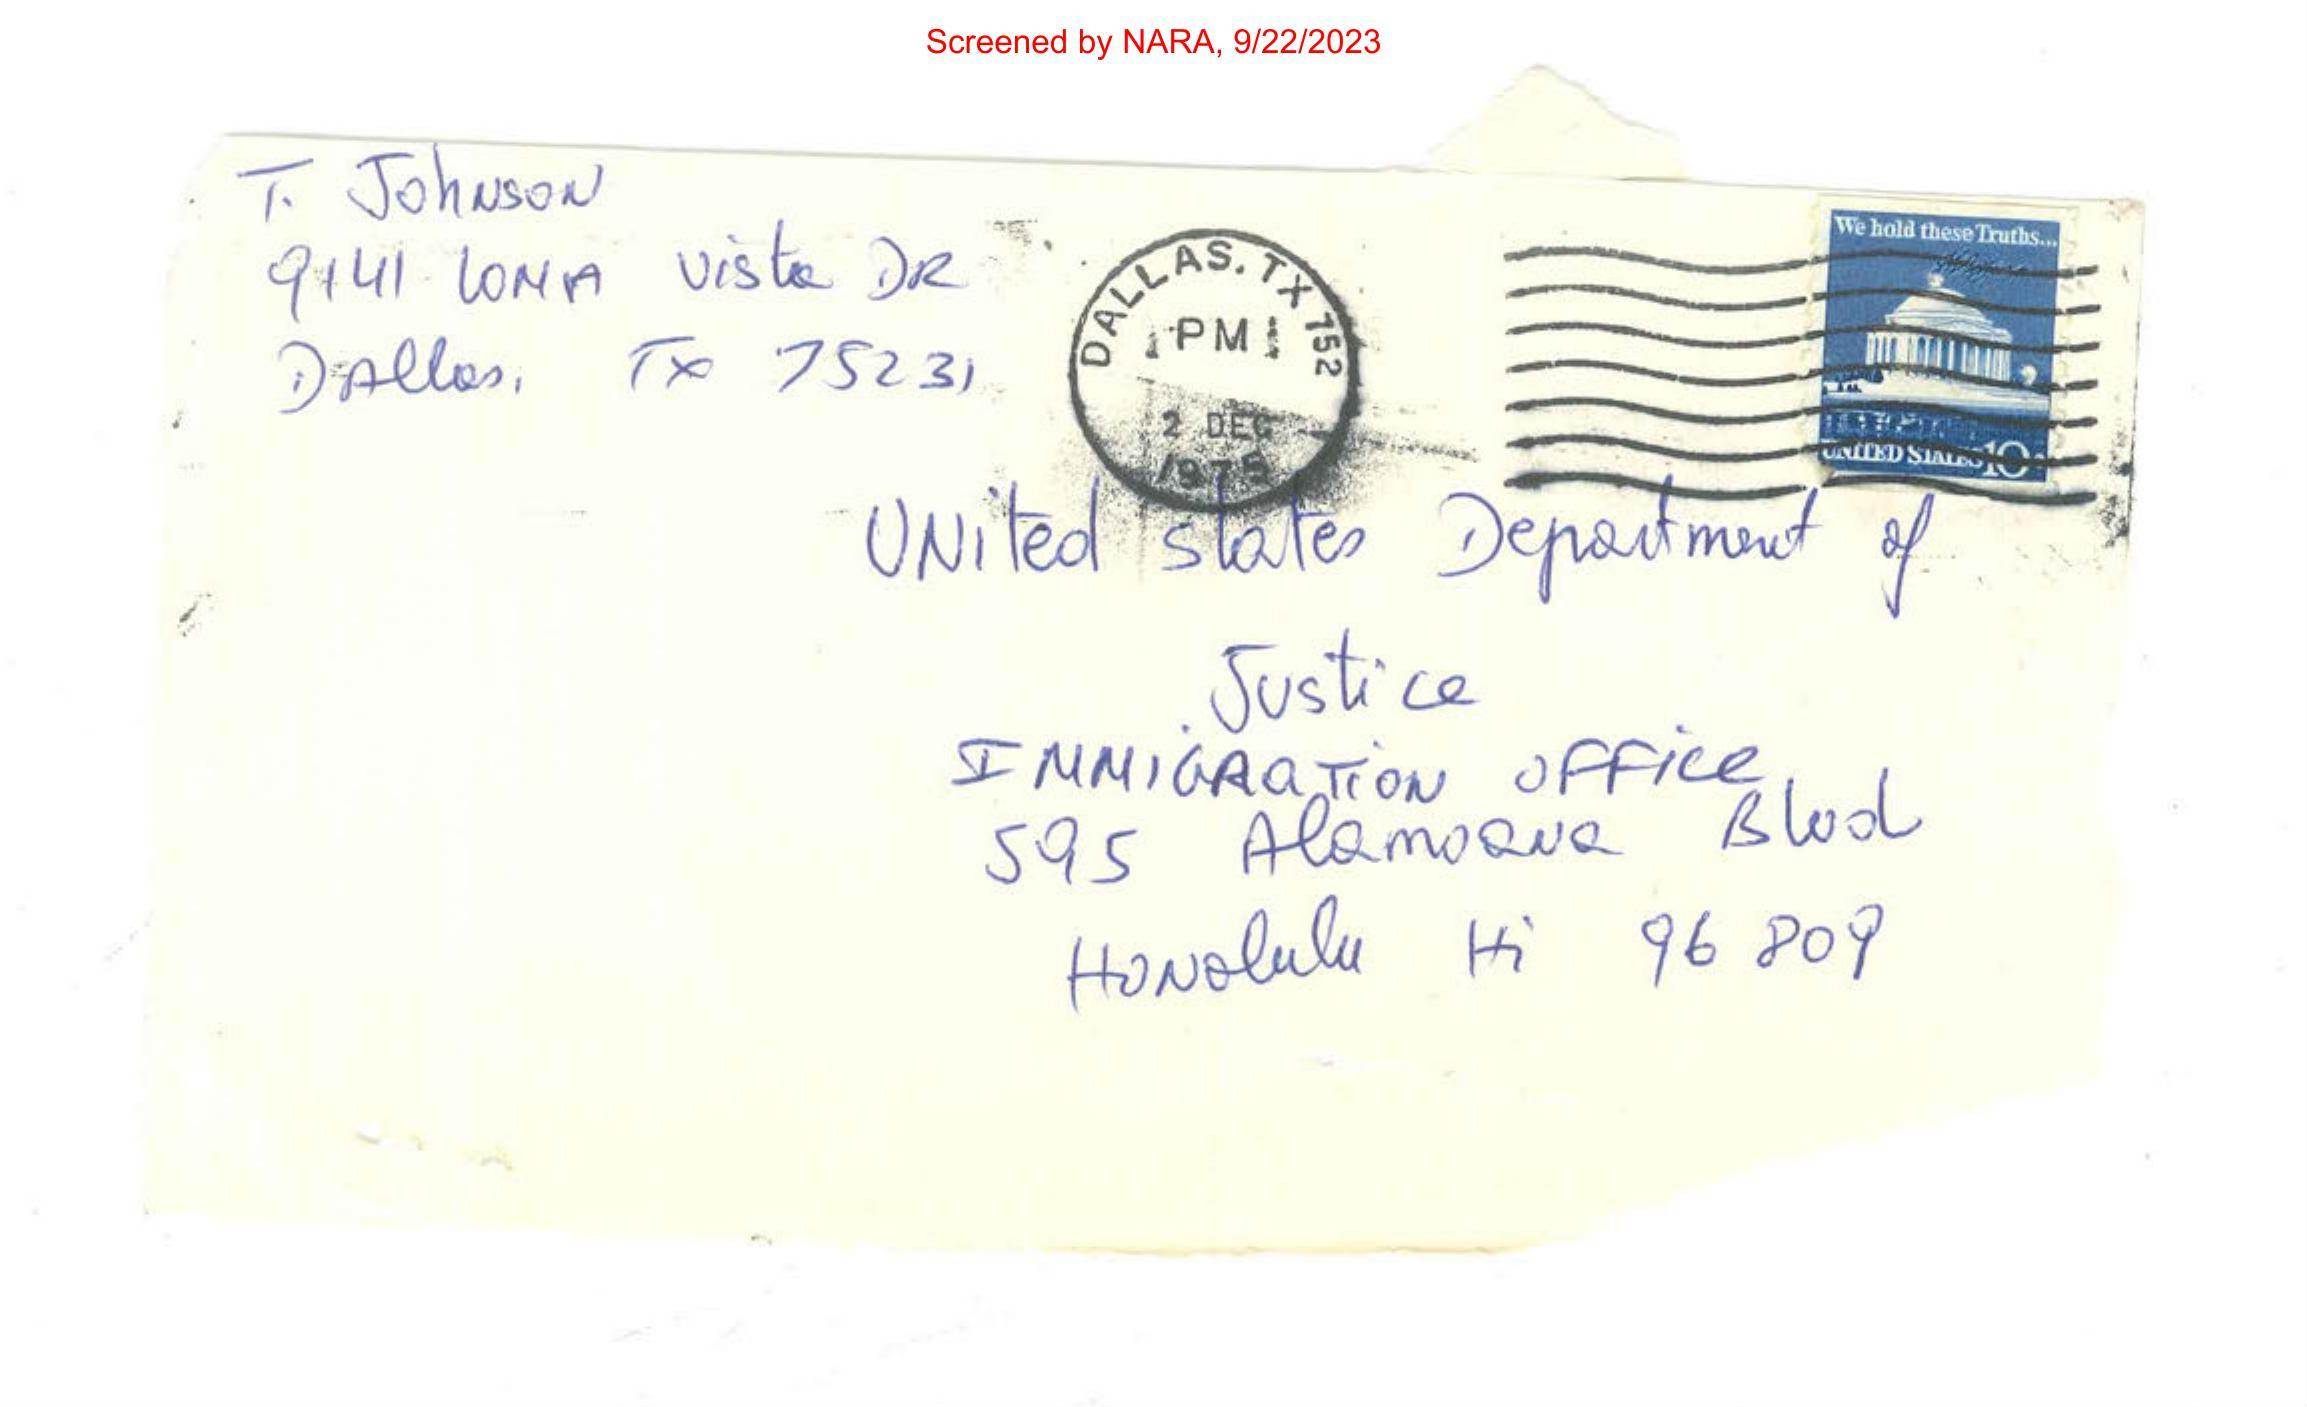 Screened by NARA, 9/22/2023
T. Johnson
9141 Loma Vista DR
Dallas, TX 75231
DALLAS, TX 752
PM
2 DEC
1975
We hold these Truths...
UNITED STATES 10c
United states Department of
Justice
Immigration office
595 Alamoana Blvd
Honolulu Hi 96809